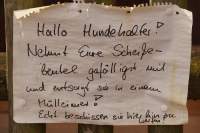 Hallo Hundehalter!
Nehmt Eure Scheiße-
beutel gefälligst mit
und entsorgt sie in einem
Mülleimer!
Echt beschissen sie hier hin zu